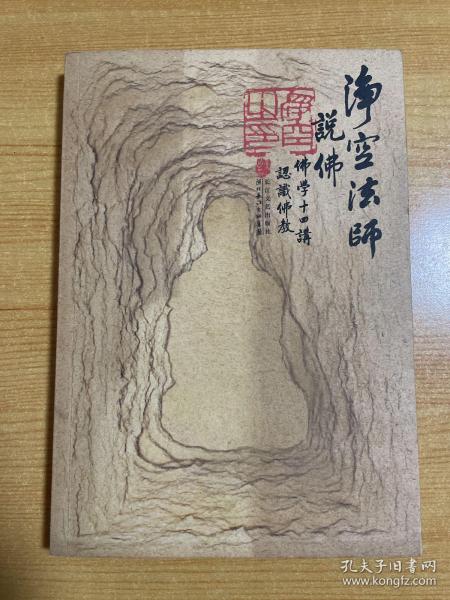 淨空法師
說佛
佛學十四講
認識佛教
長江文藝出版社
孔夫子旧书网
www.kongfz.com